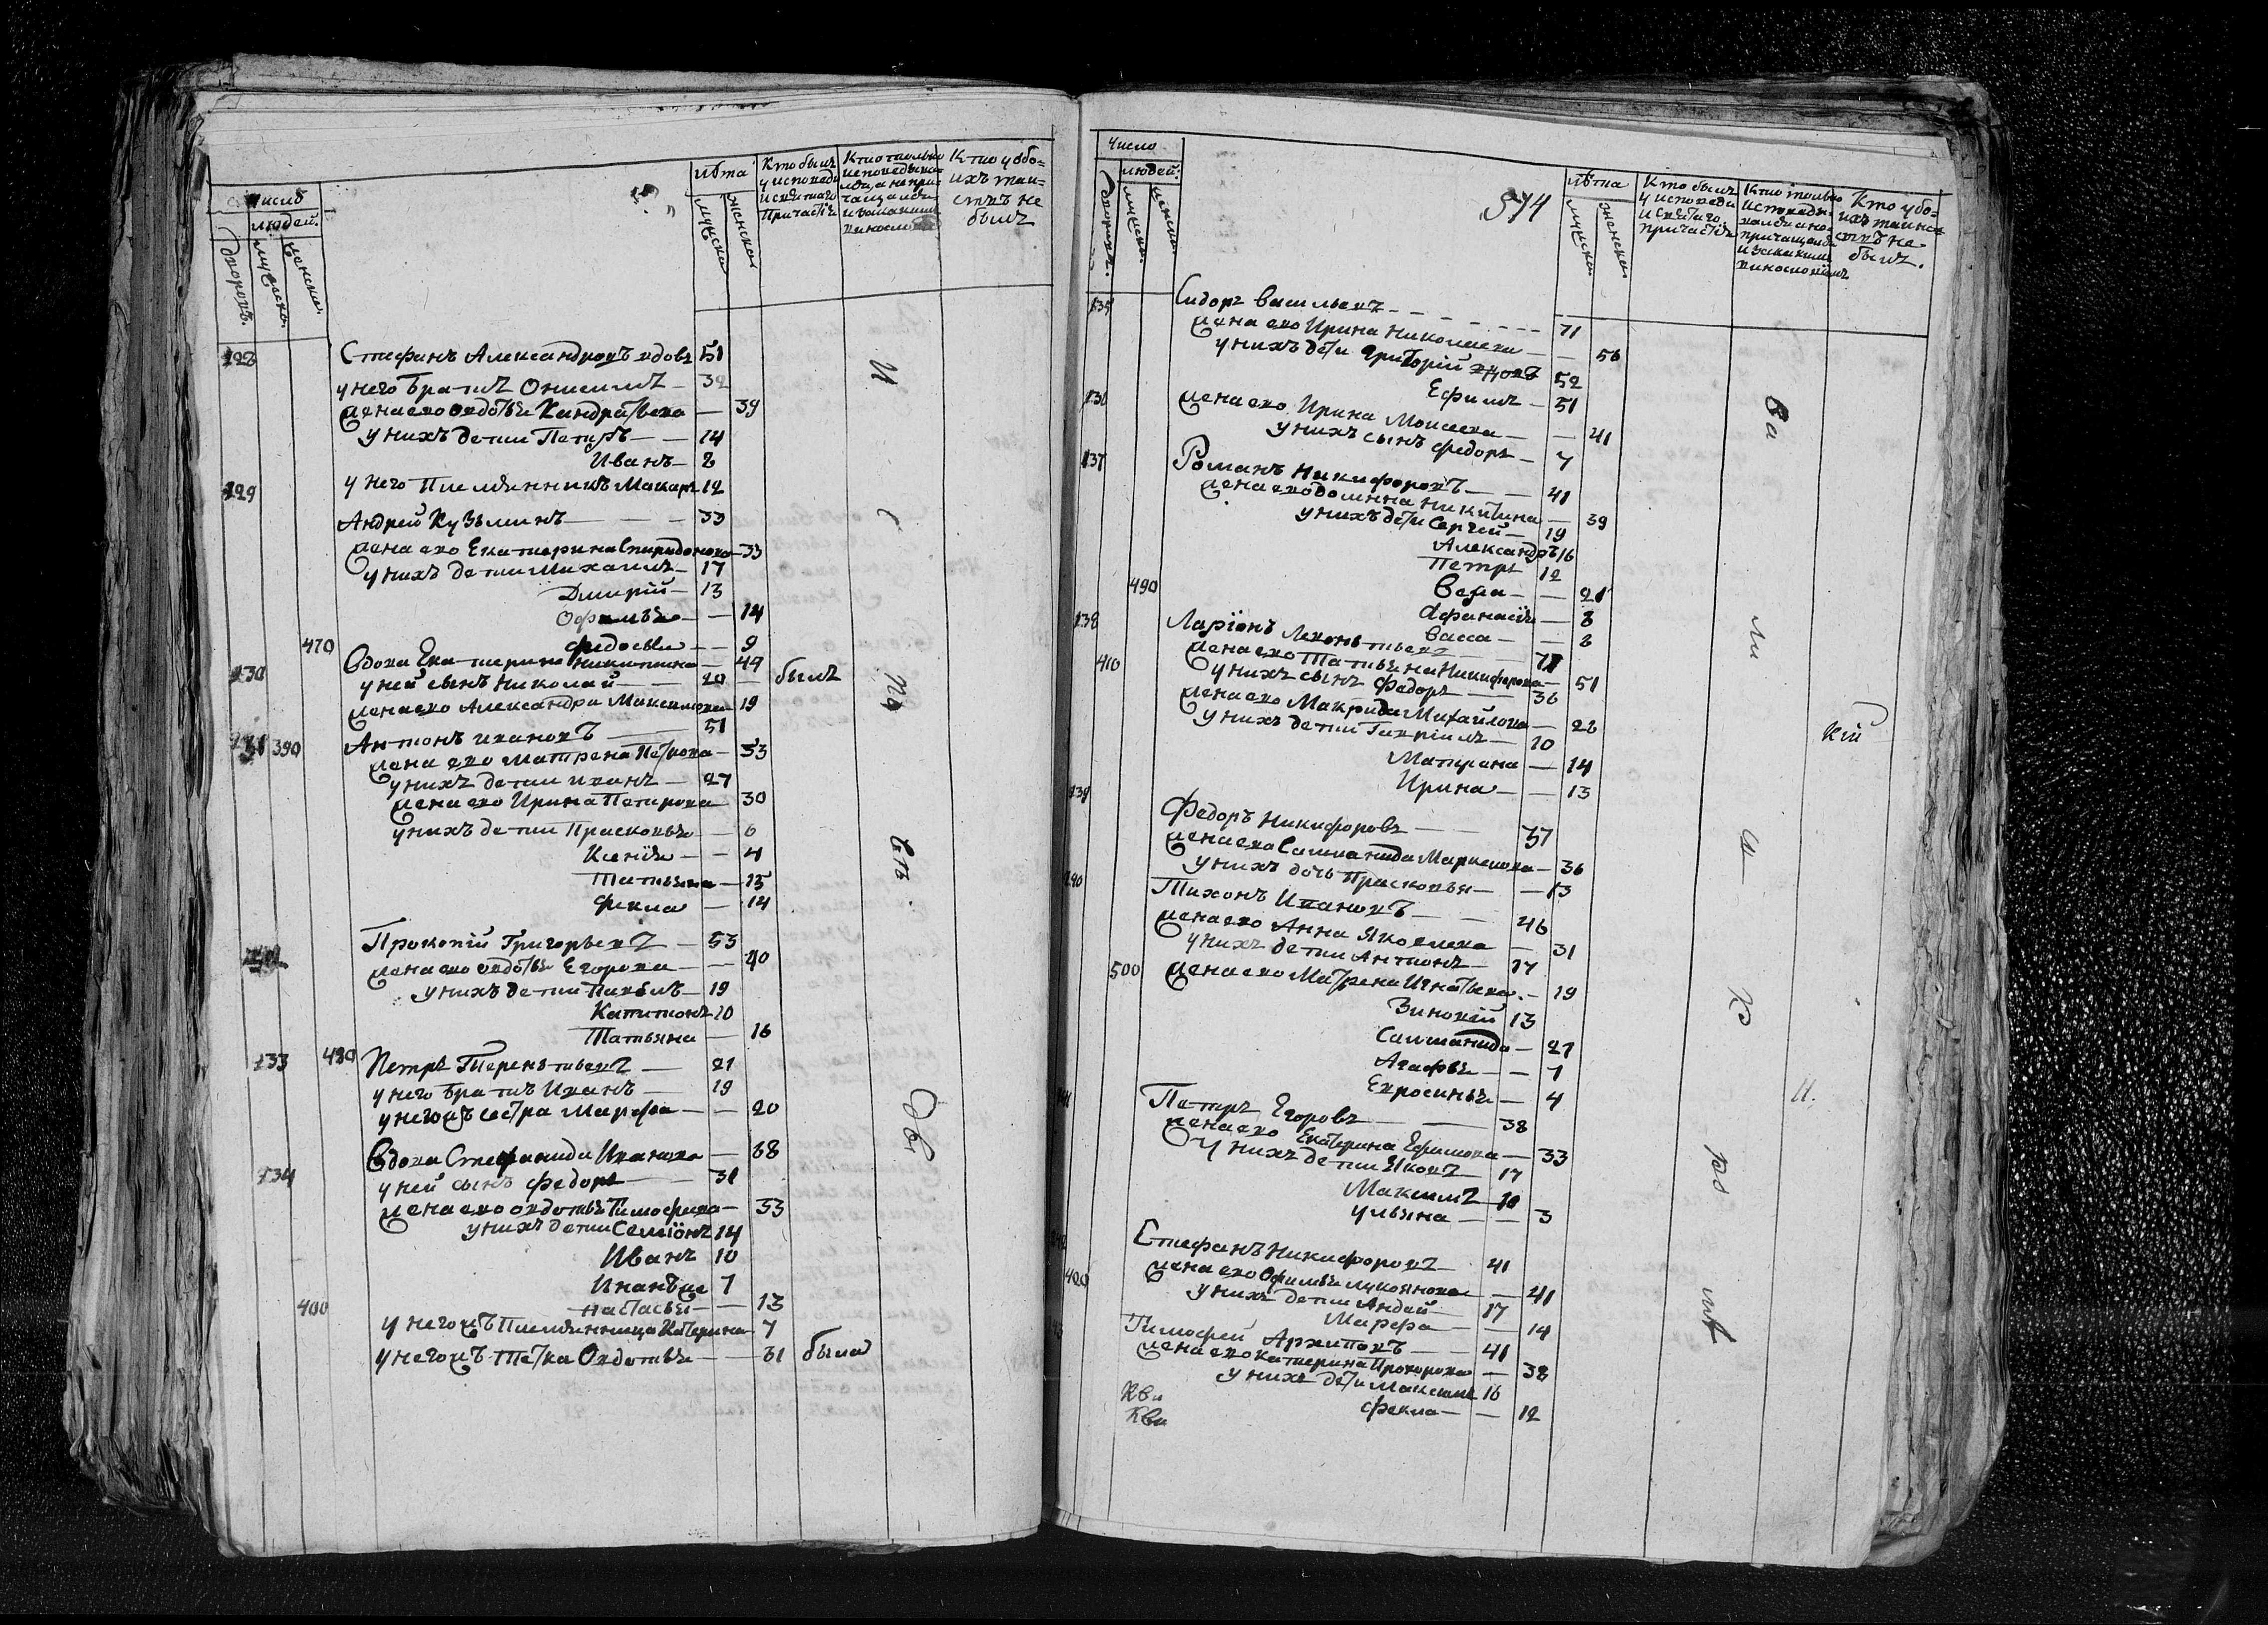 число
людей.
дворовъ.
мужеска.
женска.
лѣта
мужска
женска
Кто былъ у исповеди и святаго Причастія
Кто только исповедыва- лся а не при- чащался и за какими виносло
Кто у обо= ихъ таи= ствъ не былъ
128 Стефанъ Александровъ вдовъ 51
у него братъ Онисимъ — 32
жена его овдотья Кандратьева — 39
у нихъ дети Петръ — — 14
Иванъ — 8
129 у него Племянникъ Макаръ 12
Андрей Кузьминъ — 33
жена его Екатерина Спиридонова — 33
у нихъ дети Михаилъ — 17
Дмитрій — 13
Офимья — — 14
470 Федосья — — 9
130 Вдова Екатерина Никитина — 49
у ней сынъ Николай — 20 — былъ
жена его Александра Максимова 19
131 390 Антонъ Ивановъ — 51
жена его Матрена Петрова — 53
у нихъ дети Иванъ — 27
жена его Ирина Петрова 30
у нихъ дети Прасковья — 6
Ксенія — — 4
Татьяна — 15
Фекла — 14
Прокопій Григорьевъ — 53
жена его овдотья Егорова — — 40
у нихъ дети Павелъ — 19
Капитонъ 10
Татьяна — 16
133 480 Петръ Терентьевъ — 21
у него братъ Иванъ — 19
у негожъ сестра Марфа — — 20
Вдова Степанида Иванова — 68
134 у ней сынъ Федоръ — 31
жена его овдотья Тимофеева — 33
у нихъ дети Семіонъ 14
Иванъ 10
Инанья 7
400 Настасья — — 13
у негожъ Племянница Катерина 7
у негожъ Тетка Овдотья — — 31 была
И
с
па
въ
дв
число
людей.
дворовъ.
мужеска.
женска.
574
лѣта
мужска.
женска.
Кто былъ у исповеди и святаго причастія
Кто только исповеды- вался а не причащался и за какими виносло
Кто у обо= ихъ таин= ствъ не былъ.
135 Сидоръ Васильевъ — 71
жена его Ирина Николаева — — 56
у нихъ дети Григорій вдовъ 52
Ефимъ — 51
136 жена его Ирина Моисеева — — 41
у нихъ сынъ Федоръ — 7
137 Романъ Никифоровъ — — 41
жена его домина Никитина — 39
у нихъ дети Сергей — 19
Александръ 16
Петръ 12
490 — — 21
Афанасія — 8
Васса — — 2
138 Ларіонъ Леонтьевъ — 71
410 жена его Татьяна Никифорова — 51
у нихъ сынъ Федоръ — 36
жена его Макрида Михайлова — 28
у нихъ дети Гавріилъ — 10
Матрена — 14
Ирина — — 13
139 Федоръ Никифоровъ — — 37
жена его Саломанида Маркелова — 36
у нихъ дочь Прасковья — — 13
Тихонъ Ивановъ — — 46
жена его Анна Яковлева — 31
у нихъ дети Антонъ — 17
500 жена его Матрена Игнатьева. — 19
Зиновей 13
Саломанида — 21
Агафья — — 7
Евросинья — 4
Петръ Егоровъ — — 38
жена его Екатерина Ефимова — 33
у нихъ дети Яковъ — 17
Максимъ 10
Ульяна — — 3
Стефанъ Никифоровъ — 41
жена его Офимья Лукоянова — 41
у нихъ дети Андей — 17
Марфа — — 14
Тимофей Архиповъ — — 41
жена его Катерина Прохорова — 38
у нихъ дети Максимъ 16
Фекла — — 12
Ва
ли
кій